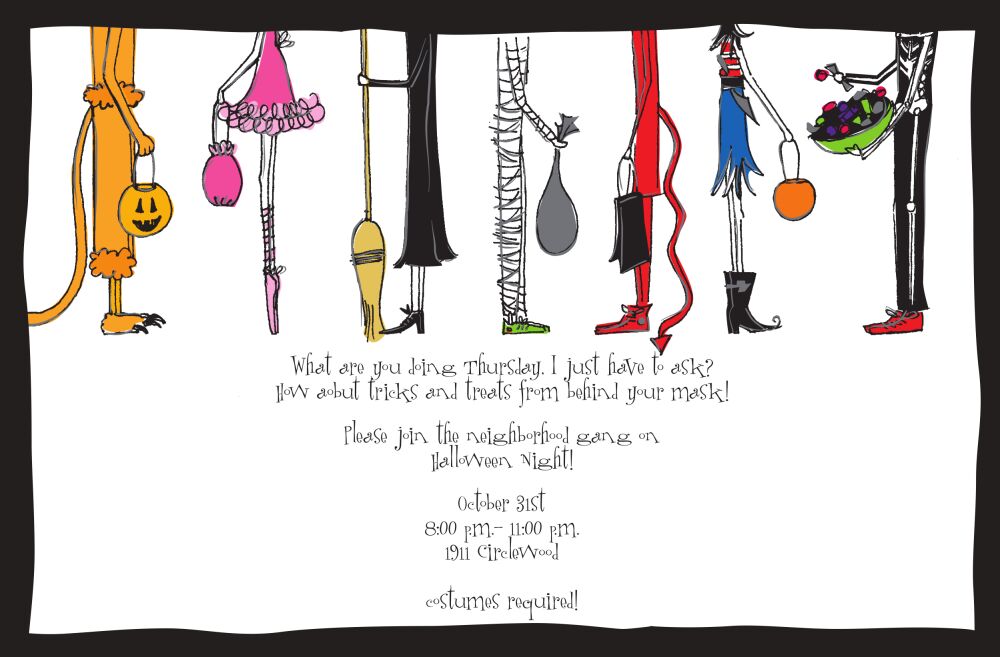 What are you doing Thursday. I just have to ask?
How aobut tricks and treats from behind your mask!
Please join the neighborhood gang on
Halloween Night!
October 31st
8:00 p.m.- 11:00 p.m.
1911 Circlewood
costumes required!